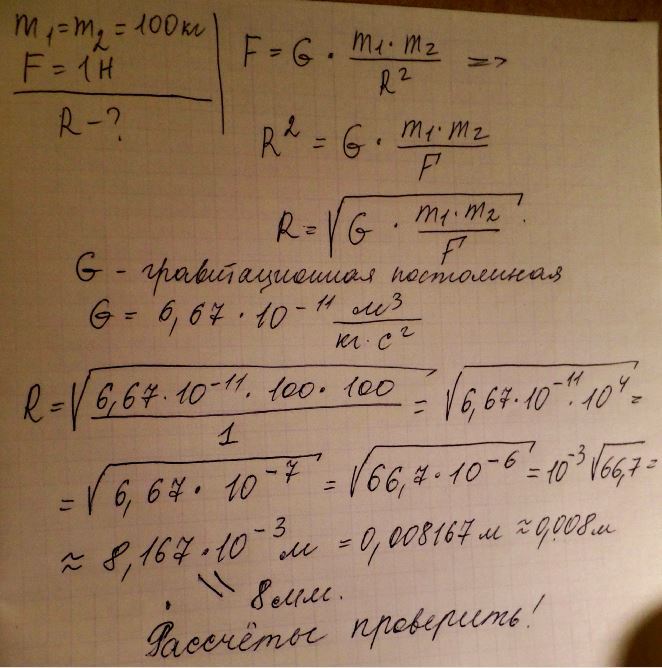 m₁ = m₂ = 100 кг
F = 1 Н
R - ?
F = G · m₁·m₂ / R² =>
R² = G · m₁·m₂ / F
R = √(G · m₁·m₂ / F).
G - гравитационная постоянная
G = 6,67 · 10⁻¹¹ м³ / кг·с²
R = √(6,67·10⁻¹¹·100·100 / 1) = √(6,67·10⁻¹¹·10⁴) =
= √(6,67·10⁻⁷) = √(66,7·10⁻⁶) = 10⁻³√66,7 =
≈ 8,167·10⁻³ м = 0,008167 м ≈ 0,008 м
\\ 8 мм.
Рассчёты проверить!